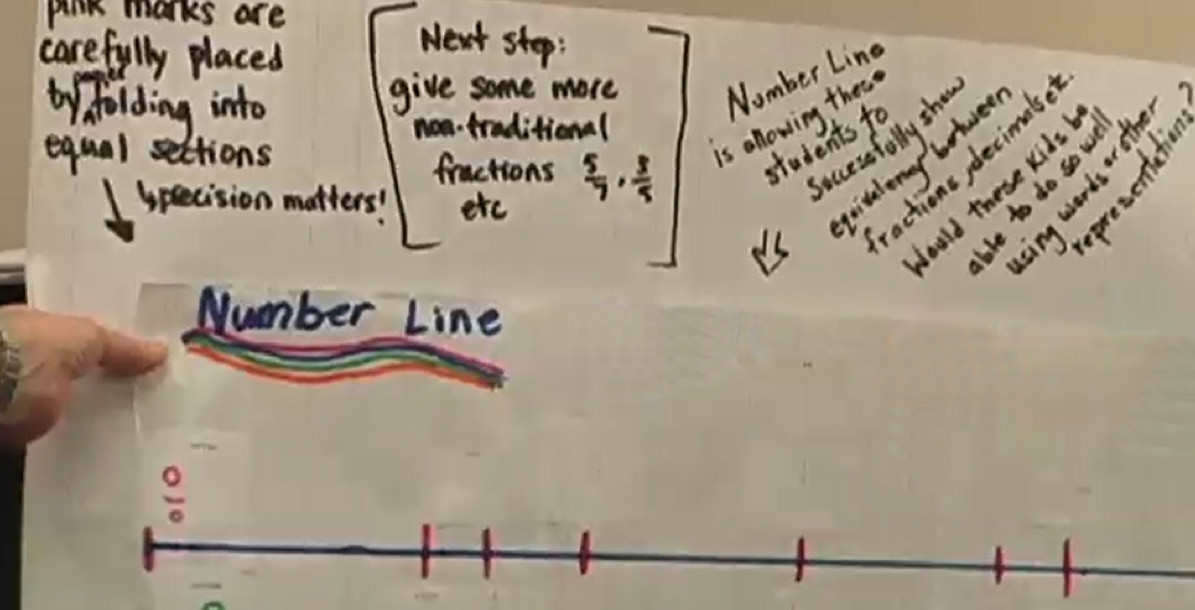 pink marks are
carefully placed
by paper folding into
equal sections
↳ precision matters!
Next step:
give some more
non-traditional
fractions 5/7, 3/5
etc
Number Line
is allowing these
students to
successfully show
equivalency between
fractions, decimals etc.
Would these kids be
able to do so well
using words or other
representations?
Number Line
0
0